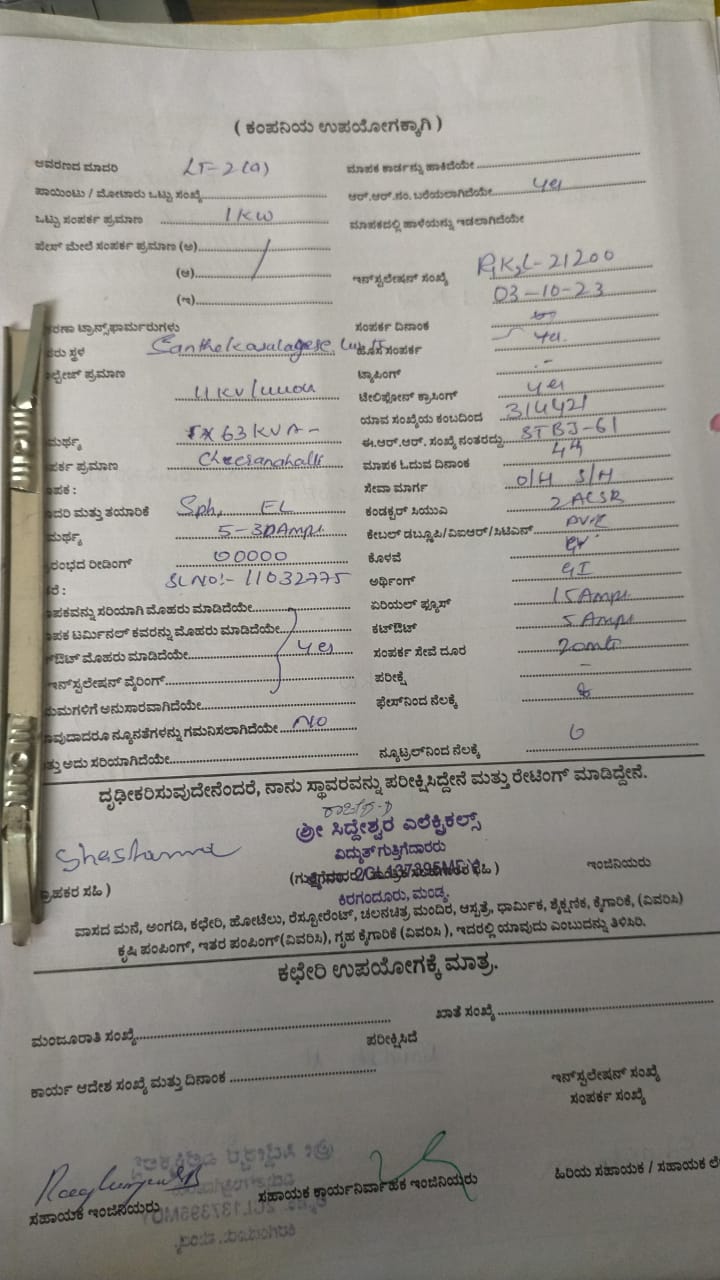 ( ಕಂಪನಿಯ ಉಪಯೋಗಕ್ಕಾಗಿ )
ಆವರಣದ ಮಾದರಿ LT-2(a) ಮಾಪಕ ಕಾರ್ಡನ್ನು ಹಾಕಿದೆಯೇ
ಪಾಯಿಂಟು / ಮೋಟಾರು ಒಟ್ಟು ಸಂಖ್ಯೆ ಆರ್.ಆರ್.ನಂ. ಬರೆಯಲಾಗಿದೆಯೇ yes
ಒಟ್ಟು ಸಂಪರ್ಕ ಪ್ರಮಾಣ 1KW ಮಾಪಕದಲ್ಲಿ ಹಾಳೆಯನ್ನು ಇಡಲಾಗಿದೆಯೇ
ಫೇಸ್ ಮೇಲೆ ಸಂಪರ್ಕ ಪ್ರಮಾಣ (ಅ)
(ಆ) ಇನ್‌ಸ್ಟಲೇಷನ್ ಸಂಖ್ಯೆ 21200
(ಇ) 03-10-23
ಕರಣಾ ಟ್ರಾನ್ಸ್‌ಫಾರ್ಮರುಗಳು ಸಂಪರ್ಕ ದಿನಾಂಕ
ಸ್ಥಳ ಹೊಸ ಸಂಪರ್ಕ yes.
ಲ್ಟೇಜ್ ಪ್ರಮಾಣ ಟ್ಯಾಪಿಂಗ್ -
11KV/ ಟೆಲಿಫೋನ್ ಕ್ರಾಸಿಂಗ್ yes
ಯಾವ ಸಂಖ್ಯೆಯ ಕಂಬದಿಂದ 314421
ಮರ್ಥ್ಯ 1X63KVA- ಈ.ಆರ್.ಆರ್. ಸಂಖ್ಯೆ ನಂತರದ್ದು STBJ-61
ಪರ್ಕ ಪ್ರಮಾಣ Cheeranahalli ಮಾಪಕ ಓದುವ ದಿನಾಂಕ 4th
ಾಪಕ : ಸೇವಾ ಮಾರ್ಗ O/H S/H
ಾದರಿ ಮತ್ತು ತಯಾರಿಕೆ Sph, EL ಕಂಡಕ್ಟರ್ ಸಿಯುವಿ 2 ACSR
ಮರ್ಥ್ಯ 5-30Amps ಕೇಬಲ್ ಡಬ್ಲ್ಯೂಪಿ/ವಿಐಆರ್/ಸಿಟಿಎಸ್ PVC
ರಂಭದ ರೀಡಿಂಗ್ 00000 ಕೊಳವೆ
ರೆ : SL NO:- 11032775 ಅರ್ಥಿಂಗ್ GI
ಾಪಕವನ್ನು ಸರಿಯಾಗಿ ಮೊಹರು ಮಾಡಿದೆಯೇ ಏರಿಯಲ್ ಫ್ಯೂಸ್ 15Amps
ಾಪಕ ಟರ್ಮಿನಲ್ ಕವರನ್ನು ಮೊಹರು ಮಾಡಿದೆಯೇ ಕಟ್‌ಔಟ್ 5 Amps
ಟ್‌ಔಟ್ ಮೊಹರು ಮಾಡಿದೆಯೇ yes ಸಂಪರ್ಕ ಸೇವೆ ದೂರ 20mtr
ಇನ್‌ಸ್ಟಲೇಷನ್ ವೈರಿಂಗ್ ಪರೀಕ್ಷೆ -
ಯಮಗಳಿಗೆ ಅನುಸಾರವಾಗಿದೆಯೇ ಫೇಸ್‌ನಿಂದ ನೆಲಕ್ಕೆ
ಾವುದಾದರೂ ನ್ಯೂನತೆಗಳನ್ನು ಗಮನಿಸಲಾಗಿದೆಯೇ NO
ತ್ತು ಅದು ಸರಿಯಾಗಿದೆಯೇ ನ್ಯೂಟ್ರಲ್‌ನಿಂದ ನೆಲಕ್ಕೆ
ದೃಢೀಕರಿಸುವುದೇನೆಂದರೆ, ನಾನು ಸ್ಥಾವರವನ್ನು ಪರೀಕ್ಷಿಸಿದ್ದೇನೆ ಮತ್ತು ರೇಟಿಂಗ್ ಮಾಡಿದ್ದೇನೆ.
ಶ್ರೀ ಸಿದ್ದೇಶ್ವರ ಎಲೆಕ್ಟ್ರಿಕಲ್ಸ್
ವಿದ್ಯುತ್ ಗುತ್ತಿಗೆದಾರರು
2CL137395MDY
ಗ್ರಾಹಕರ ಸಹಿ ) ಇಂಜಿನಿಯರು
ಕಿರಗಂದೂರು, ಮಂಡ್ಯ.
ವಾಸದ ಮನೆ, ಅಂಗಡಿ, ಕಛೇರಿ, ಹೋಟೆಲು, ರೆಸ್ಟೋರೆಂಟ್, ಚಲನಚಿತ್ರ ಮಂದಿರ, ಆಸ್ಪತ್ರೆ, ಧಾರ್ಮಿಕ, ಶೈಕ್ಷಣಿಕ, ಕೈಗಾರಿಕೆ, (ವಿವರಿಸಿ)
ಕೃಷಿ ಪಂಪಿಂಗ್, ಇತರ ಪಂಪಿಂಗ್(ವಿವರಿಸಿ), ಗೃಹ ಕೈಗಾರಿಕೆ (ವಿವರಿಸಿ ), ಇದರಲ್ಲಿ ಯಾವುದು ಎಂಬುದನ್ನು ತಿಳಿಸಿರಿ.
ಕಛೇರಿ ಉಪಯೋಗಕ್ಕೆ ಮಾತ್ರ.
ಮಂಜೂರಾತಿ ಸಂಖ್ಯೆ ಖಾತೆ ಸಂಖ್ಯೆ
ಪರೀಕ್ಷಿಸಿದೆ
ಕಾರ್ಯ ಆದೇಶ ಸಂಖ್ಯೆ ಮತ್ತು ದಿನಾಂಕ ಇನ್‌ಸ್ಟಲೇಷನ್ ಸಂಖ್ಯೆ
ಸಂಪರ್ಕ ಸಂಖ್ಯೆ
ಸಹಾಯಕ ಇಂಜಿನಿಯರು ಸಹಾಯಕ ಕಾರ್ಯನಿರ್ವಾಹಕ ಇಂಜಿನಿಯರು ಹಿರಿಯ ಸಹಾಯಕ / ಸಹಾಯಕ ಲೆ